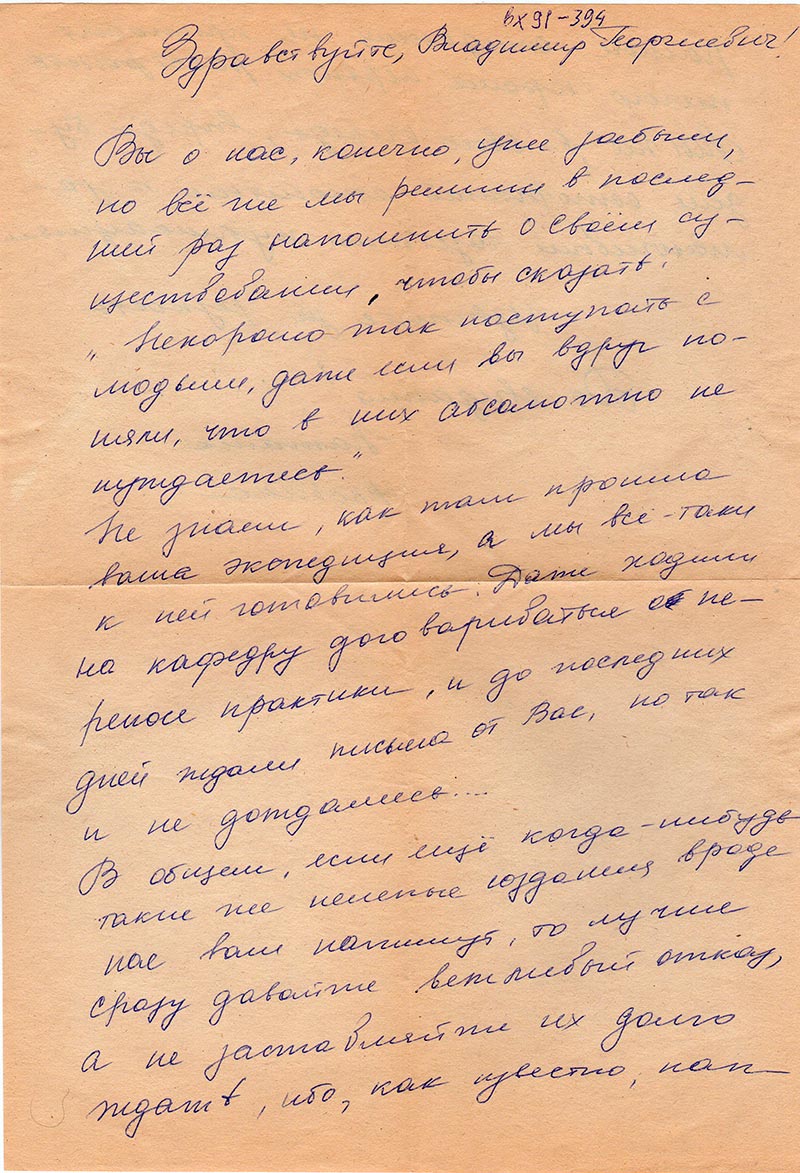 вх 91-394
Здравствуйте, Владимир Георгиевич!
Вы о нас, конечно, уже забыли,
но всё же мы решили в послед-
ний раз напомнить о своём су-
ществовании, чтобы сказать:
„Нехорошо так поступать с
людьми, даже если вы вдруг по-
няли, что в них абсолютно не
нуждаетесь."
Не знаем, как там прошла
ваша экспедиция, а мы всё-таки
к ней готовились. Даже ходили
на кафедру договариваться о пе-
реносе практики, и до последних
дней ждали письма от Вас, но так
и не дождались....
В общем, если ещё когда-нибудь
такие же нелепые создания вроде
нас вам напишут, то лучше
сразу давайте вежливый отказ,
а не заставляйте их долго
ждать, ибо, как известно, нап-